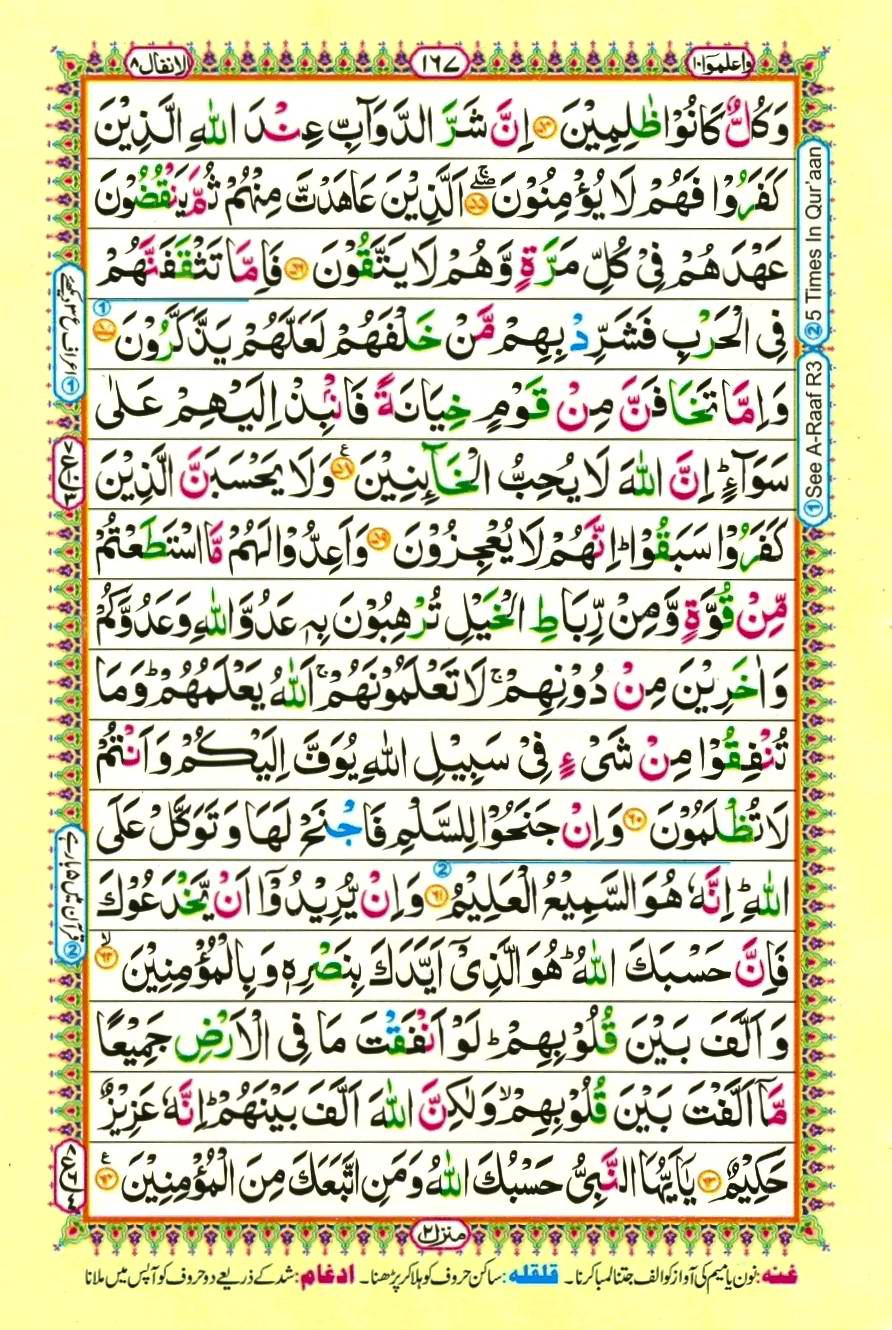 واعلموا ۱۰
۱۶۷
الانفال ۸
وَكُلٌّ كَانُوْا ظٰلِمِيْنَ ﴿۵۴﴾ اِنَّ شَرَّ الدَّوَآبِّ عِنْدَ اللّٰهِ الَّذِيْنَ
كَفَرُوْا فَهُمْ لَا يُؤْمِنُوْنَ ﴿۵۵﴾ اَلَّذِيْنَ عَاهَدْتَّ مِنْهُمْ ثُمَّ يَنْقُضُوْنَ
عَهْدَهُمْ فِيْ كُلِّ مَرَّةٍ وَّهُمْ لَا يَتَّقُوْنَ ﴿۵۶﴾ فَاِمَّا تَثْقَفَنَّهُمْ
فِي الْحَرْبِ فَشَرِّدْ بِهِمْ مَّنْ خَلْفَهُمْ لَعَلَّهُمْ يَذَّكَّرُوْنَ ﴿۵۷﴾
وَاِمَّا تَخَافَنَّ مِنْ قَوْمٍ خِيَانَةً فَانْۢبِذْ اِلَيْهِمْ عَلٰى
سَوَآءٍ ؕ اِنَّ اللّٰهَ لَا يُحِبُّ الْخَآئِنِيْنَ ﴿۵۸﴾ وَلَا يَحْسَبَنَّ الَّذِيْنَ
كَفَرُوْا سَبَقُوْا ؕ اِنَّهُمْ لَا يُعْجِزُوْنَ ﴿۵۹﴾ وَاَعِدُّوْا لَهُمْ مَّا اسْتَطَعْتُمْ
مِّنْ قُوَّةٍ وَّمِنْ رِّبَاطِ الْخَيْلِ تُرْهِبُوْنَ بِهٖ عَدُوَّ اللّٰهِ وَعَدُوَّكُمْ
وَاٰخَرِيْنَ مِنْ دُوْنِهِمْ ۚ لَا تَعْلَمُوْنَهُمْ ۚ اَللّٰهُ يَعْلَمُهُمْ ؕ وَمَا
تُنْفِقُوْا مِنْ شَيْءٍ فِيْ سَبِيْلِ اللّٰهِ يُوَفَّ اِلَيْكُمْ وَاَنْتُمْ
لَا تُظْلَمُوْنَ ﴿۶۰﴾ وَاِنْ جَنَحُوْا لِلسَّلْمِ فَاجْنَحْ لَهَا وَتَوَكَّلْ عَلَى
اللّٰهِ ؕ اِنَّهٗ هُوَ السَّمِيْعُ الْعَلِيْمُ ﴿۶۱﴾ وَاِنْ يُّرِيْدُوْٓا اَنْ يَّخْدَعُوْكَ
فَاِنَّ حَسْبَكَ اللّٰهُ ؕ هُوَ الَّذِيْٓ اَيَّدَكَ بِنَصْرِهٖ وَبِالْمُؤْمِنِيْنَ ﴿۶۲﴾
وَاَلَّفَ بَيْنَ قُلُوْبِهِمْ ؕ لَوْ اَنْفَقْتَ مَا فِي الْاَرْضِ جَمِيْعًا
مَّآ اَلَّفْتَ بَيْنَ قُلُوْبِهِمْ ۙ وَلٰكِنَّ اللّٰهَ اَلَّفَ بَيْنَهُمْ ؕ اِنَّهٗ عَزِيْزٌ
حَكِيْمٌ ﴿۶۳﴾ يٰٓاَيُّهَا النَّبِيُّ حَسْبُكَ اللّٰهُ وَمَنِ اتَّبَعَكَ مِنَ الْمُؤْمِنِيْنَ ﴿۶۴﴾
② 5 Times In Qur'aan
① See A-Raaf R3
② قرآن میں ۵ بار ہے
منزل ۲
غنہ: نون یا میم کی آواز کو الف جتنا لمبا کرنا۔ قلقلہ: ساکن حروف کو ہلا کر پڑھنا۔ ادغام: شد کے ذریعے دو حروف کو آپس میں ملانا